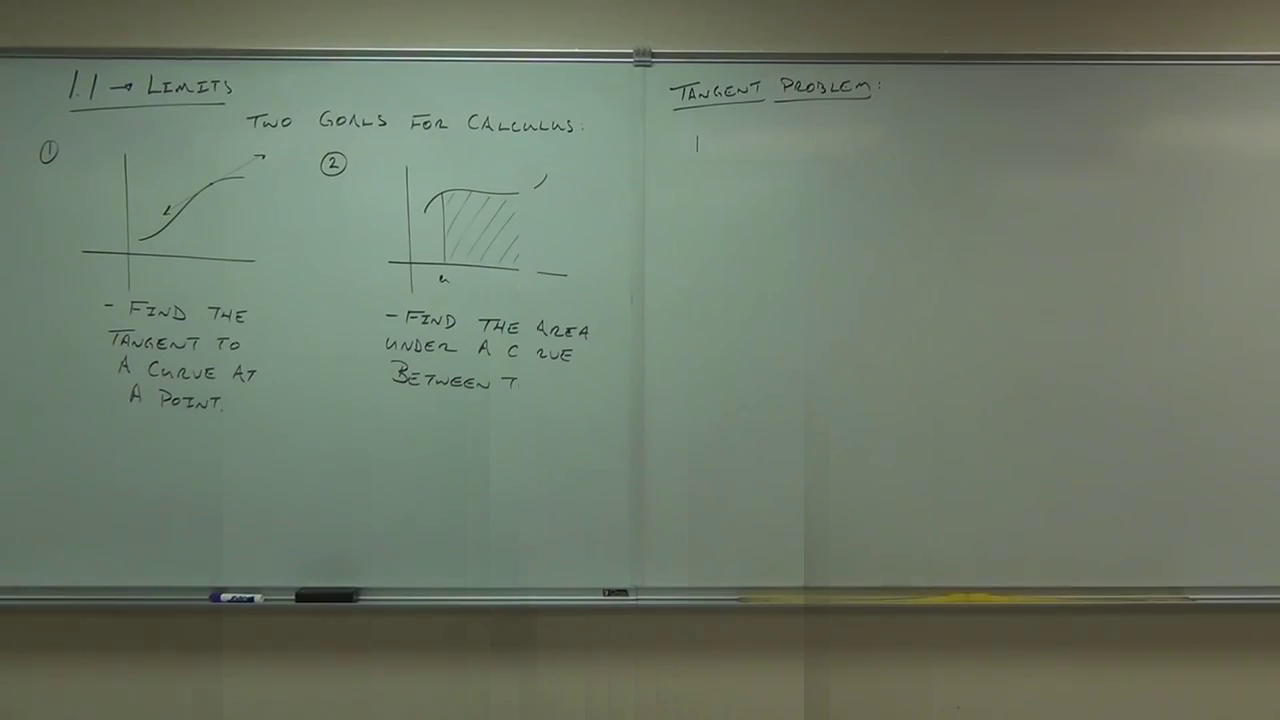 1.1 → LIMITS
TWO GOALS FOR CALCULUS:
①
- FIND THE
TANGENT TO
A CURVE AT
A POINT.
②
a
- FIND THE AREA
UNDER A C RVE
BETWEEN T
TANGENT PROBLEM: